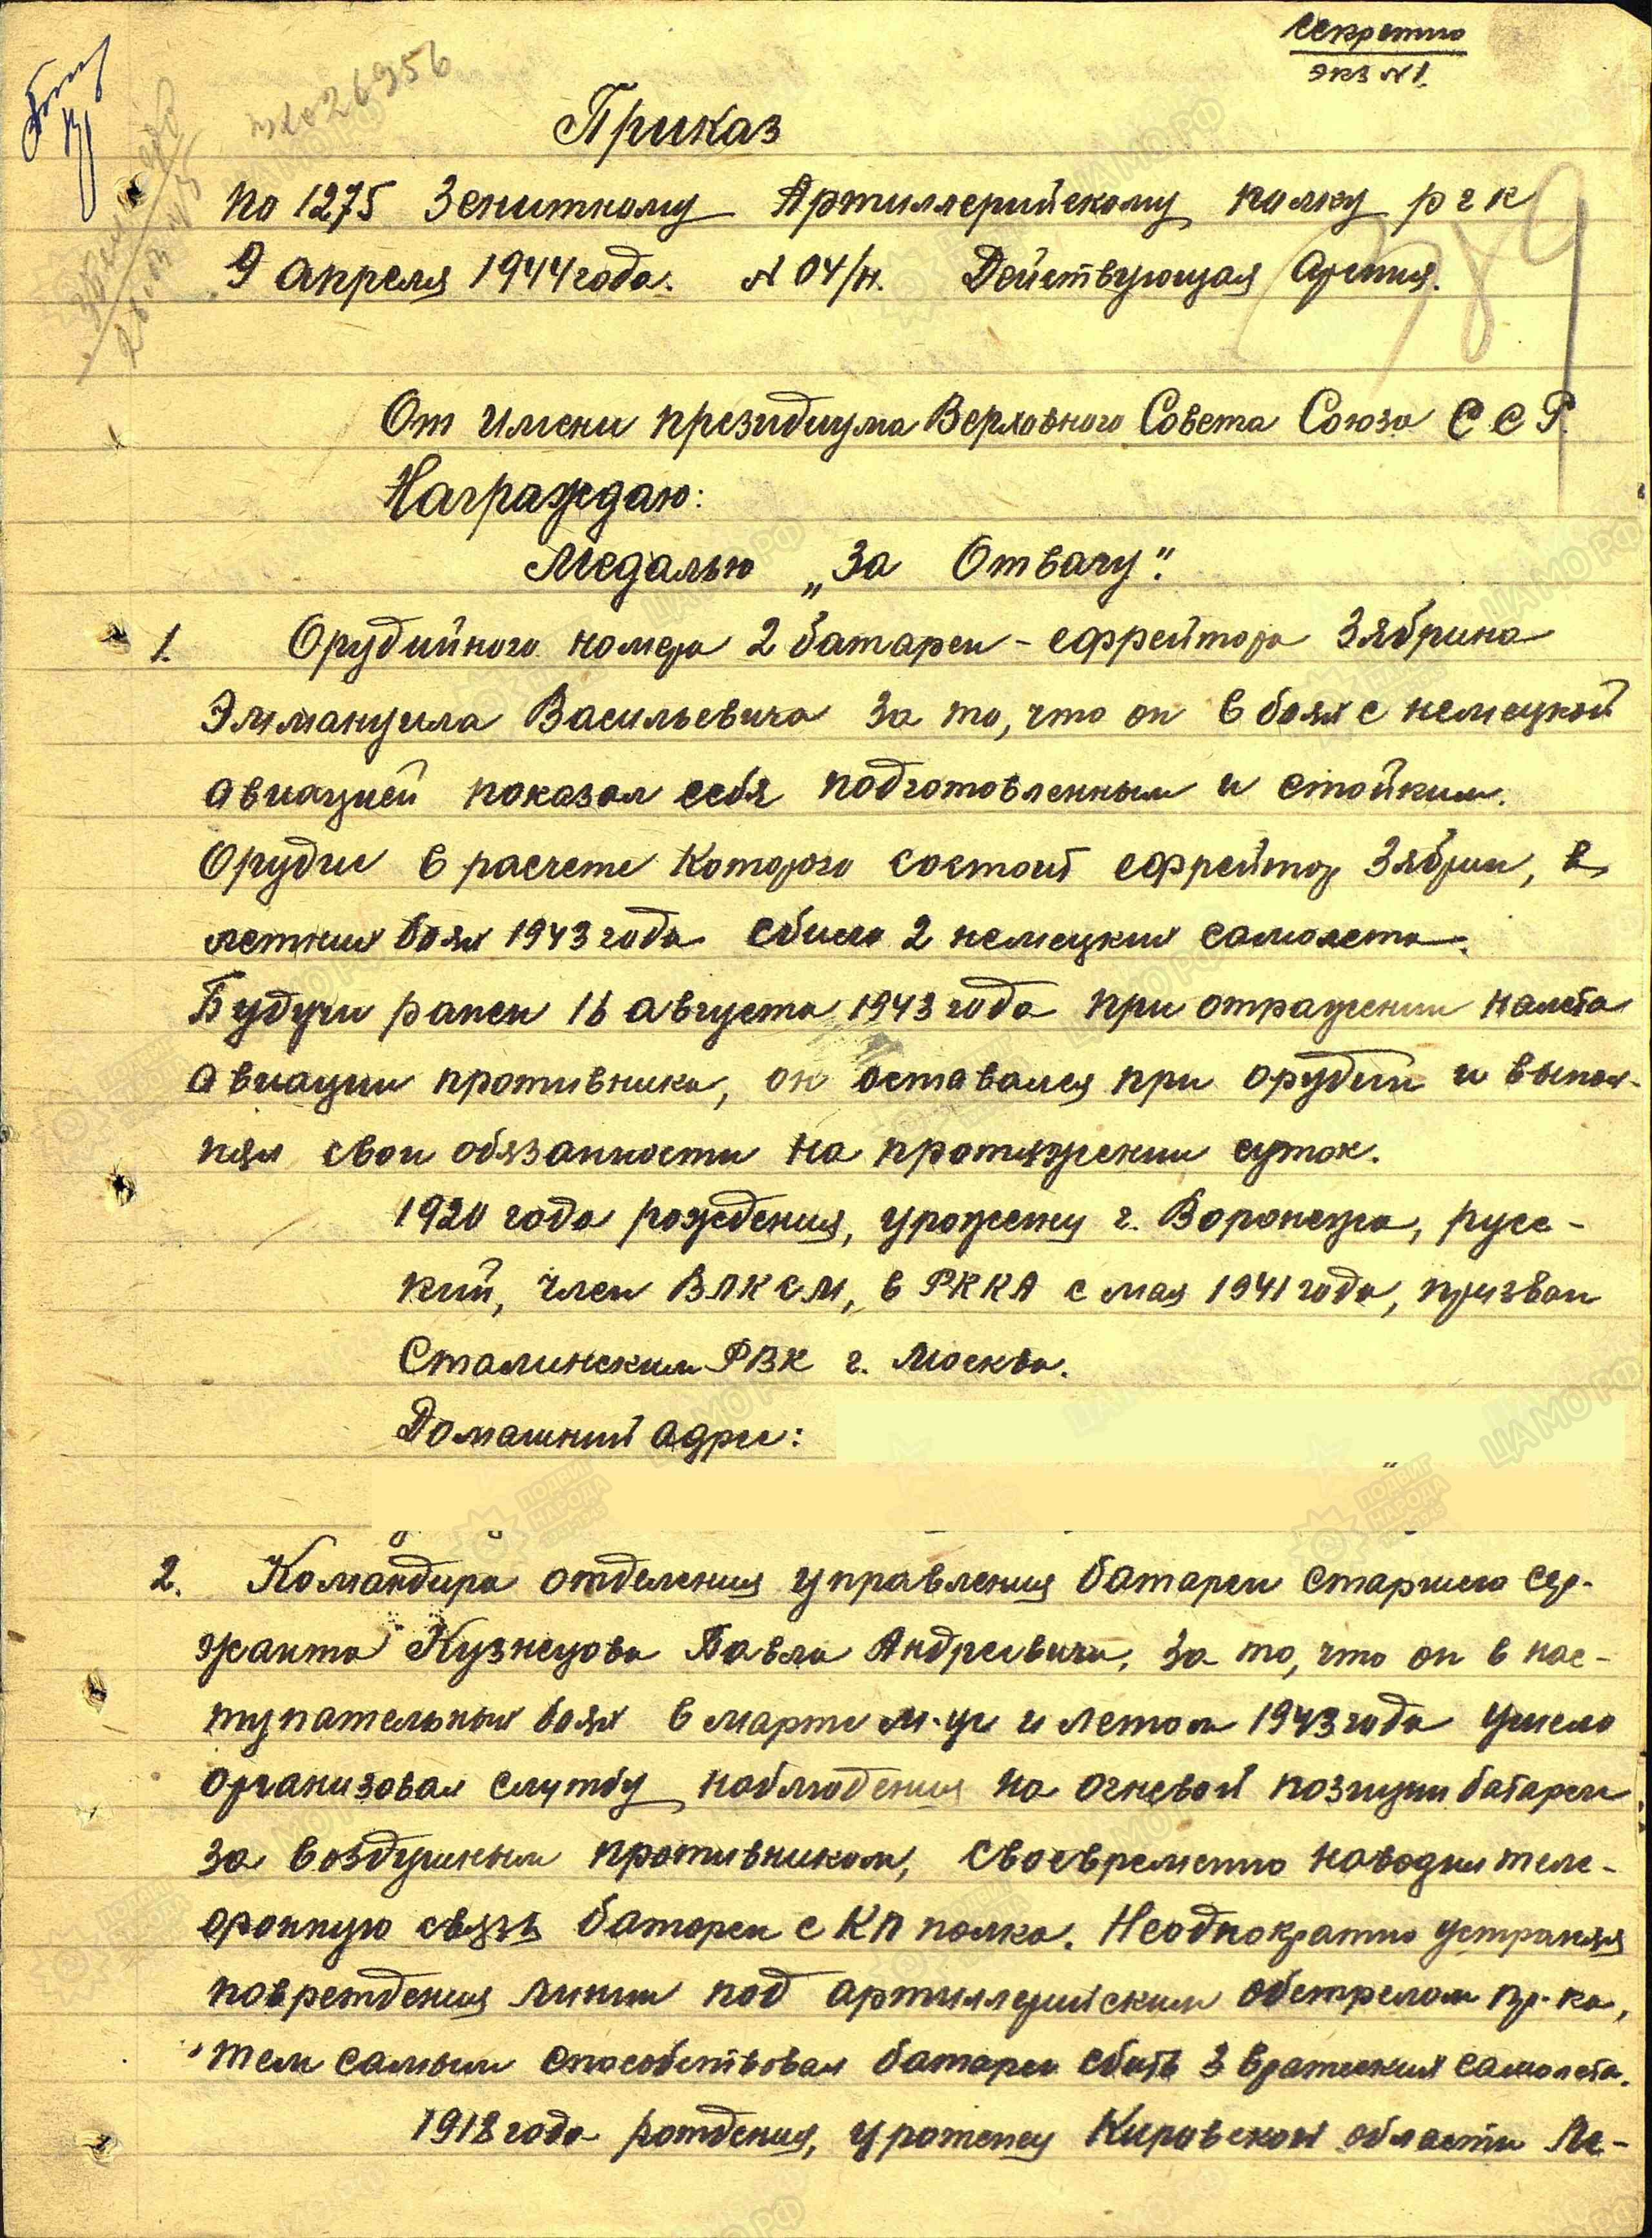 Секретно
экз №1.
Приказ
по 1275 Зенитному Артиллерийскому полку р г к
9 апреля 1944 года. № 04/н. Действующая Армия.
От имени президиума Верховного Совета Союза С С Р.
Награждаю:
Медалью „За Отвагу".
1. Орудийного номера 2 батареи - ефрейтора Зябрина
Эммануила Васильевича за то, что он в боях с немецкой
авиацией показал себя подготовленным и стойким.
Орудие в расчете которого состоит ефрейтор Зябрин, в
летних боях 1943 года сбило 2 немецких самолета.
Будучи ранен 16 августа 1943 года при отражении налета
авиации противника, он оставался при орудии и выпол-
нял свои обязанности на протяжении суток.
1920 года рождения, уроженец г. Воронежа, русс-
кий, член ВЛКСМ, в РККА с мая 1941 года, призван
Сталинским РВК г. Москва.
Домашний адрес:
2. Командира отделения управления батареи старшего сер-
жанта Кузнецова Павла Андреевича, за то, что он в нас-
тупательных боях в марте м-це и летом 1943 года умело
организовал службу наблюдения на огневой позиции батареи
за воздушным противником, своевременно наводил теле-
фонную связь батареи с КП полка. Неоднократно устранял
повреждения линии под артиллерийским обстрелом пр-ка,
тем самым способствовал батарее сбить 3 вражеских самолета.
1918 года рождения, уроженец Кировской области Ле-